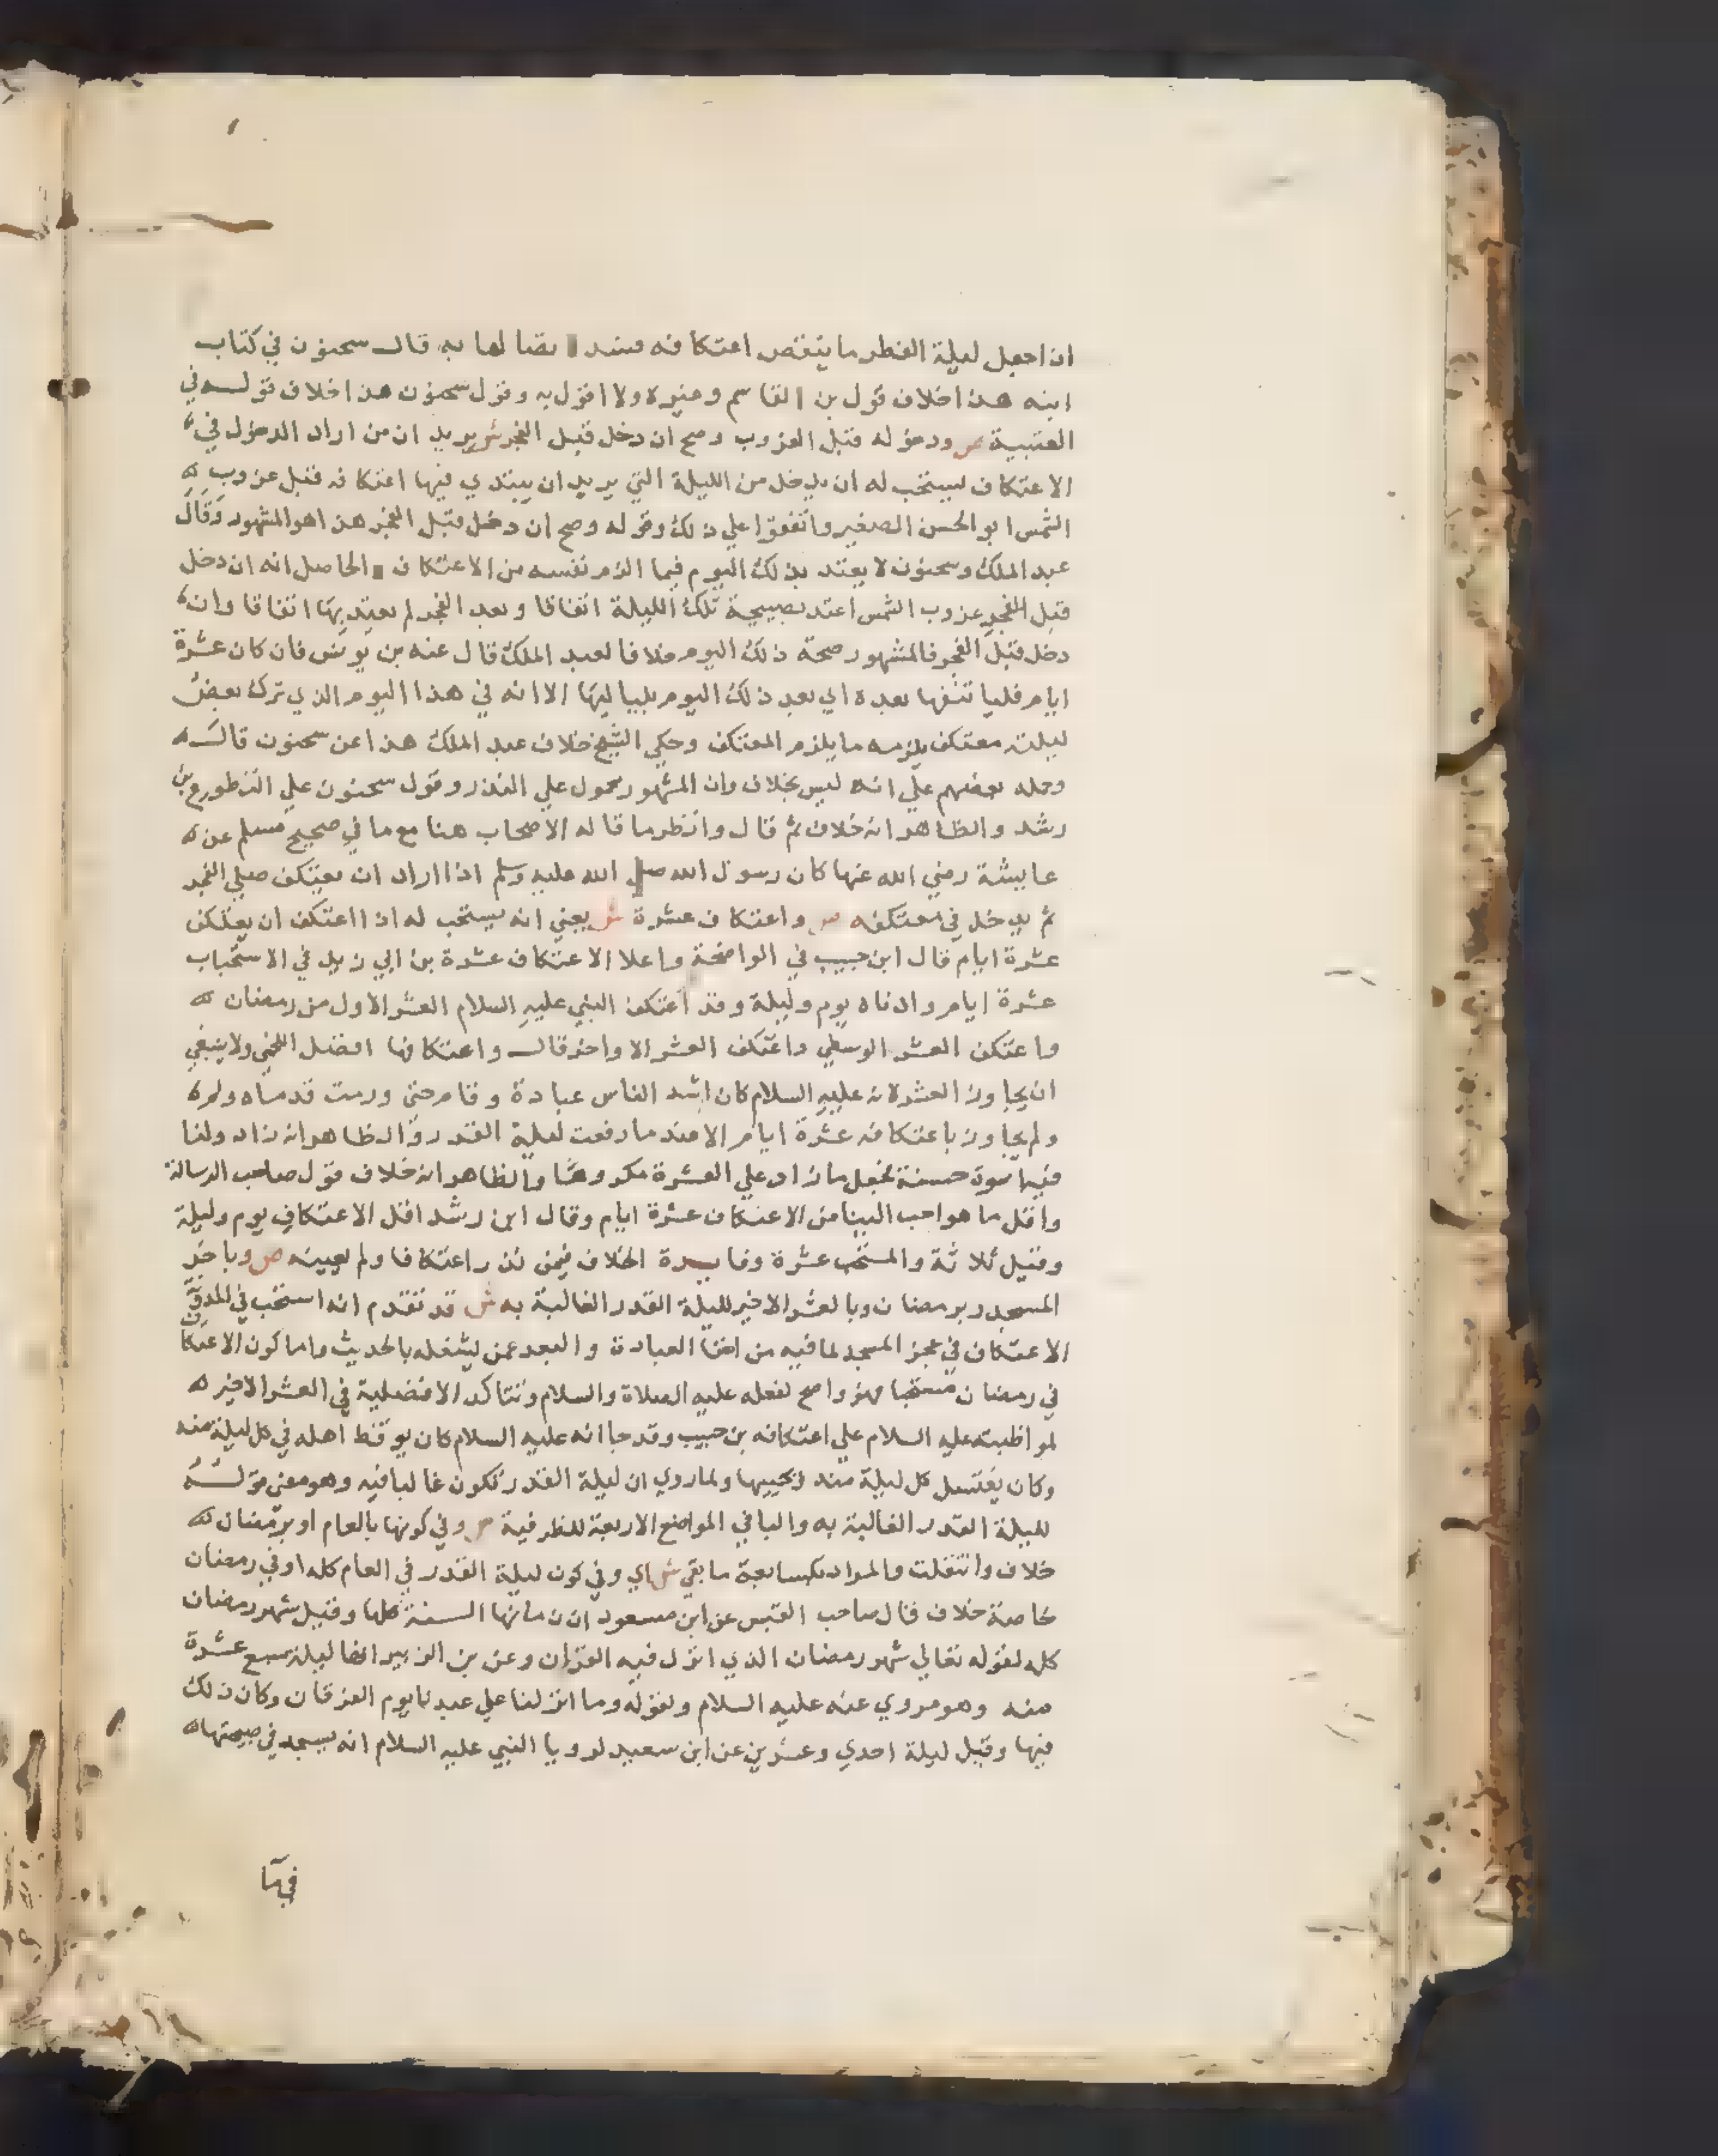 ان احعل ليلة الفطر ما ينقض اعتكافه فسد لها به قال سحنون في كتاب
ابنه هذا خلاف قول بن القاسم وغيره ولا اقول به وقول سحنون هذا خلاف قوله في
العتبية ص ودخوله قبل الغروب وصح ان دخل قبل الفجر ش يريد ان من اراد الدخول في
الاعتكاف يستحب له ان يدخل من الليلة التي يريد ان يبتدي فيها اعتكافه قبل غروب
الشمس ابو الحسن الصغير واتفقوا علي ذلك وقوله وصح ان دخل قبل الفجر هذا هو المشهور وقال
عبد الملك وسحنون لا يعتد بذلك اليوم فيما الزم نفسه من الاعتكاف الحاصل انه ان دخل
قبل الفجر غروب الشمس اعتد بصبيحة تلك الليلة اتفاقا وبعد الفجر لم يعتد بها اتفاقا وان
دخل قبل الفجر فالمشهور صحة ذلك اليوم خلافا لعبد الملك قال عنه بن يونس فان كان عشرة
ايام فليا تنفها بعده اي بعد ذلك اليوم بلياليها الا انه في هذا اليوم الذي ترك بعض
ليلته معتكف يلزمه ما يلزم المعتكف وحكي الشيخ خلاف عبد الملك هذا عن سحنون قال
وحمله بعضهم علي انه ليس بخلاف وان المشهور محمول علي النذر وقول سحنون علي التطوع بن
رشد والظاهر انه خلاف ثم قال وانظر ما قاله الاصحاب هنا مع ما في صحيح مسلم عن
عايشة رضي الله عنها كان رسول الله صلي الله عليه وسلم اذا اراد ان يعتكف صلي الفجر
ثم يدخل في معتكفه ص واعتكاف عشرة ش يعني انه يستحب له اذا اعتكف ان يعتكف
عشرة ايام قال ابن حبيب في الواضحة واعلا الاعتكاف عشرة بن ابي زيد في الاستحباب
عشرة ايام وادناه يوم وليلة وقد اعتكف النبي عليه السلام العشر الاول من رمضان
واعتكف العشر الوسطي واعتكف العشر الاواخر قال واعتكافها افضل اللخمي ولا ينبغي
ان يجاوز العشر لانه عليه السلام كان اشد الناس عبادة وقام حتي ورمت قدماه ولم
ولم يجاوز باعتكافه عشرة ايام الا عند ما رفعت ليلة القدر والظاهر انه زاد ولنا
فيه اسوة حسنة فجعل ما زاد علي العشرة مكروها والظاهر انه خلاف قول صاحب الرسالة
واقل ما هو احب الينا من الاعتكاف عشرة ايام وقال ابن رشد اقل الاعتكاف يوم وليلة
وقيل ثلاثة والمستحب عشرة وفايدة الخلاف فيمن نذر اعتكافا ولم يعينه ص وباخر
المسجد وبرمضان وبالعشر الاخير لليلة القدر الغالبة به ش قد تقدم انه استحب في المدونة
الاعتكاف في عجز المسجد لما فيه من اخفا العبادة والبعد عمن يشغله بالحديث واما كون الاعتكاف
في رمضان مستحبا فهو واضح لفعله عليه الصلاة والسلام وتتاكد الافضلية في العشر الاخير
لمواظبته عليه السلام علي اعتكافه بن حبيب وقد جا انه عليه السلام كان يوقظ اهله في كل ليلة منه
وكان يغتسل كل ليلة منه ويحييها ولما روي ان ليلة القدر تكون غالبا فيه وهو معني قوله
لليلة القدر الغالبة به والبا في المواضع الاربعة للظرفية ص وفي كونها بالعام او برمضان
خلاف وانتقلت والمراد بكسابعة ما بقي ش اي وفي كون ليلة القدر في العام كله او في رمضان
خاصة خلاف قال صاحب القبس عن ابن مسعود ان زمانها السنة كلها وقيل شهر رمضان
كله لقوله تعالي شهر رمضان الذي انزل فيه القران وعن بن الزبير انها ليلة سبع عشرة
منه وهو مروي عنه عليه السلام ولقوله وما انزلنا علي عبدنا يوم الفرقان وكان ذلك
فيها وقيل ليلة احدي وعشرين عن ابن سعيد لرويا النبي عليه السلام انه يسجد في صبيحتها
فيها